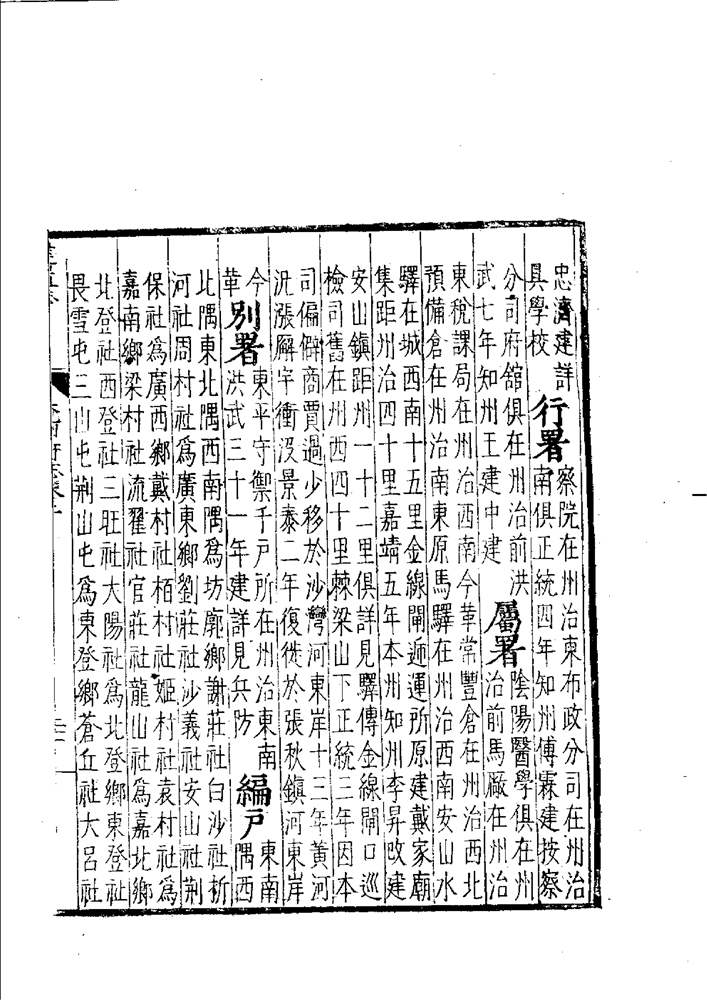 忠濟建詳
具學校
行署
察院在州治東布政分司在州治
南俱正統四年知州傅霖建按察
分司府舘俱在州治前洪
武七年知州王建中建
屬署
陰陽醫學俱在州
治前馬厰在州治
東稅課局在州治西南今革常豐倉在州治西北
預備倉在州治南東原馬驛在州治西南安山水
驛在城西南十五里金線閘逓運所原建戴家廟
集距州治四十里嘉靖五年本州知州李昇改建
安山鎮距州一十二里俱詳見驛傳金線閘口巡
檢司舊在州西四十里棘梁山下正統三年因本
司偏僻商賈過少移於沙灣河東岸十三年黄河
況漲廨宇衝没景泰二年復徙於張秋鎮河東岸
今
革
別署
東平守禦千戸所在州治東南
洪武三十一年建詳見兵防
編戸
東南
隅西
北隅東北隅西南隅爲坊廓鄉謝莊社白沙社析
河社周村社爲廣東鄉劉莊社沙義社安山社荆
保社爲廣西鄉戴村社栢村社姬村社袁村社爲
嘉南鄉梁村社流社官莊社龍山社爲嘉北鄉
北登社西登社三旺社大陽社爲北登鄉東登社
畏雪屯三山屯荆山屯爲東登鄉蒼丘社大呂社